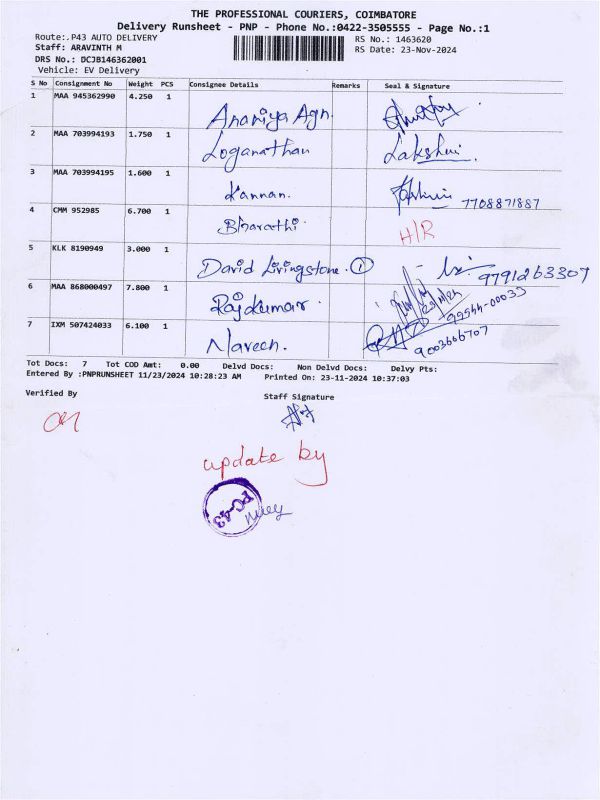 THE PROFESSIONAL COURIERS, COIMBATORE
Delivery Runsheet - PNP - Phone No.:0422-3505555 - Page No.:1
Route:.P43 AUTO DELIVERY RS No.: 1463620
Staff: ARAVINTH M RS Date: 23-Nov-2024
DRS No.: DCJB146362001
Vehicle: EV Delivery
S No Consignment No Weight PCS Consignee Details Remarks Seal & Signature
1 MAA 945362990 4.250 1 Ananiya Agn.
2 MAA 703994193 1.750 1 Loganathan Lakshmi.
3 MAA 703994195 1.600 1 Kannan. 7708871887
4 CMM 952985 6.700 1 Bharathi. H/R
5 KLK 8190949 3.000 1 David Livingstone. ① 9791263307
6 MAA 868000497 7.800 1 Rajkumar. 99544-00033
7 IXM 507424033 6.100 1 Naveen. 9003666707
Tot Docs: 7 Tot COD Amt: 0.00 Delvd Docs: Non Delvd Docs: Delvy Pts:
Entered By :PNPRUNSHEET 11/23/2024 10:28:23 AM Printed On: 23-11-2024 10:37:03
Verified By Staff Signature
update by
PC-43